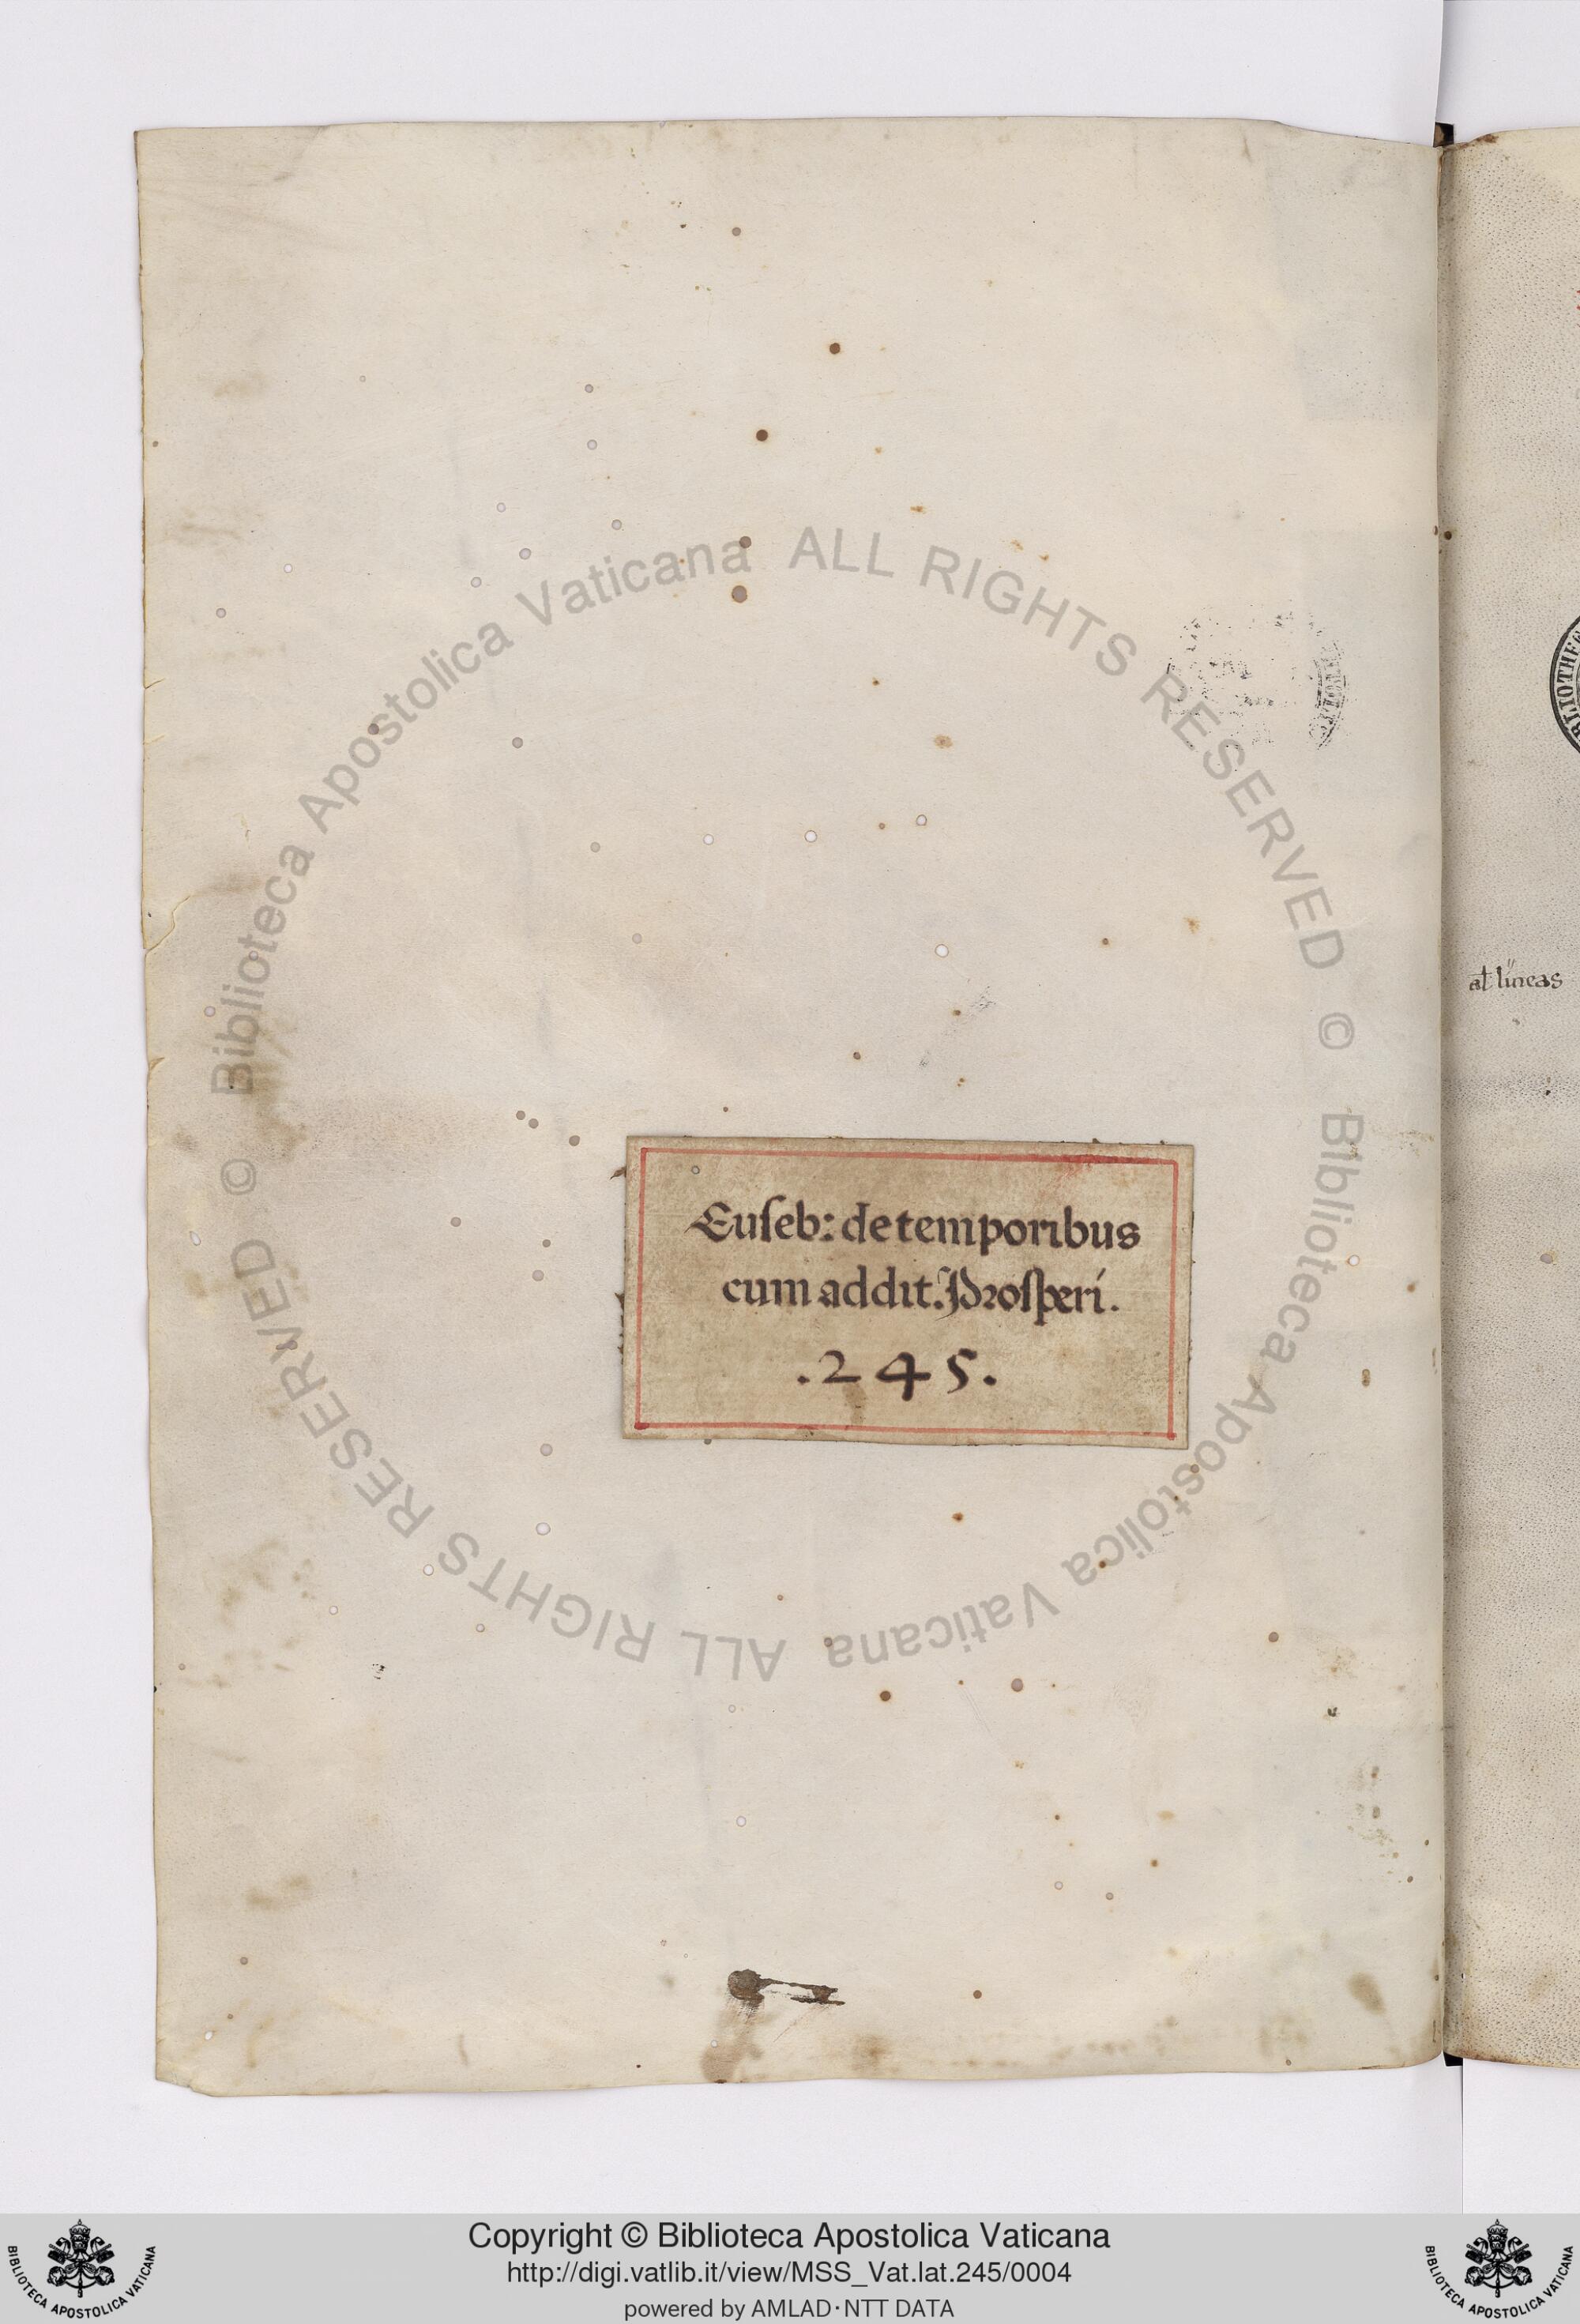 Euseb: de temporibus
cum addit. Prosperi.
.245.
al lineas
BLIOTHEC
© Biblioteca Apostolica Vaticana ALL RIGHTS RESERVED
© Biblioteca Apostolica Vaticana ALL RIGHTS RESERVED
Copyright © Biblioteca Apostolica Vaticana
http://digi.vatlib.it/view/MSS_Vat.lat.245/0004
powered by AMLAD·NTT DATA
BIBLIOTECA APOSTOLICA VATICANA
BIBLIOTECA APOSTOLICA VATICANA